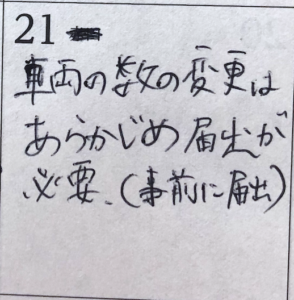 21
車両の数の変更は
あらかじめ届出が
必要、(事前に届出)